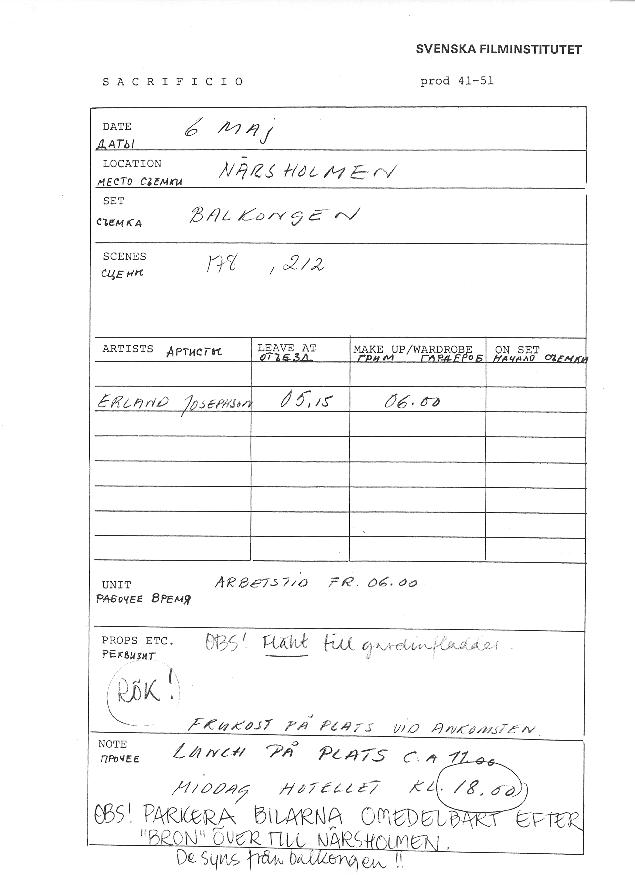 SVENSKA FILMINSTITUTET
SACRIFICIO prod 41-51
DATE 6 MAJ
ДАТЫ
LOCATION NÄRSHOLMEN
МЕСТО СЪЕМКИ
SET BALKONGEN
СЪЕМКА
SCENES 178, 212
СЦЕНЫ
ARTISTS АРТИСТЫ LEAVE AT MAKE UP/WARDROBE ON SET
ОТЪЕЗД ГРИМ ГАРДЕРОБ НАЧАЛО СЪЕМКИ
ERLAND JOSEPHSON 05.15 06.00
UNIT ARBETSTID FR. 06.00
РАБОЧЕЕ ВРЕМЯ
PROPS ETC. OBS! Fläkt till gardinfladder.
РЕКВИЗИТ
RÖK!
FRUKOST PÅ PLATS VID ANKOMSTEN.
NOTE LUNCH PÅ PLATS C.A 11.00
ПРОЧЕЕ
MIDDAG HOTELLET KL. 18.00
OBS! PARKERA BILARNA OMEDELBART EFTER
"BRON" ÖVER TILL NÄRSHOLMEN.
De syns från balkongen!!